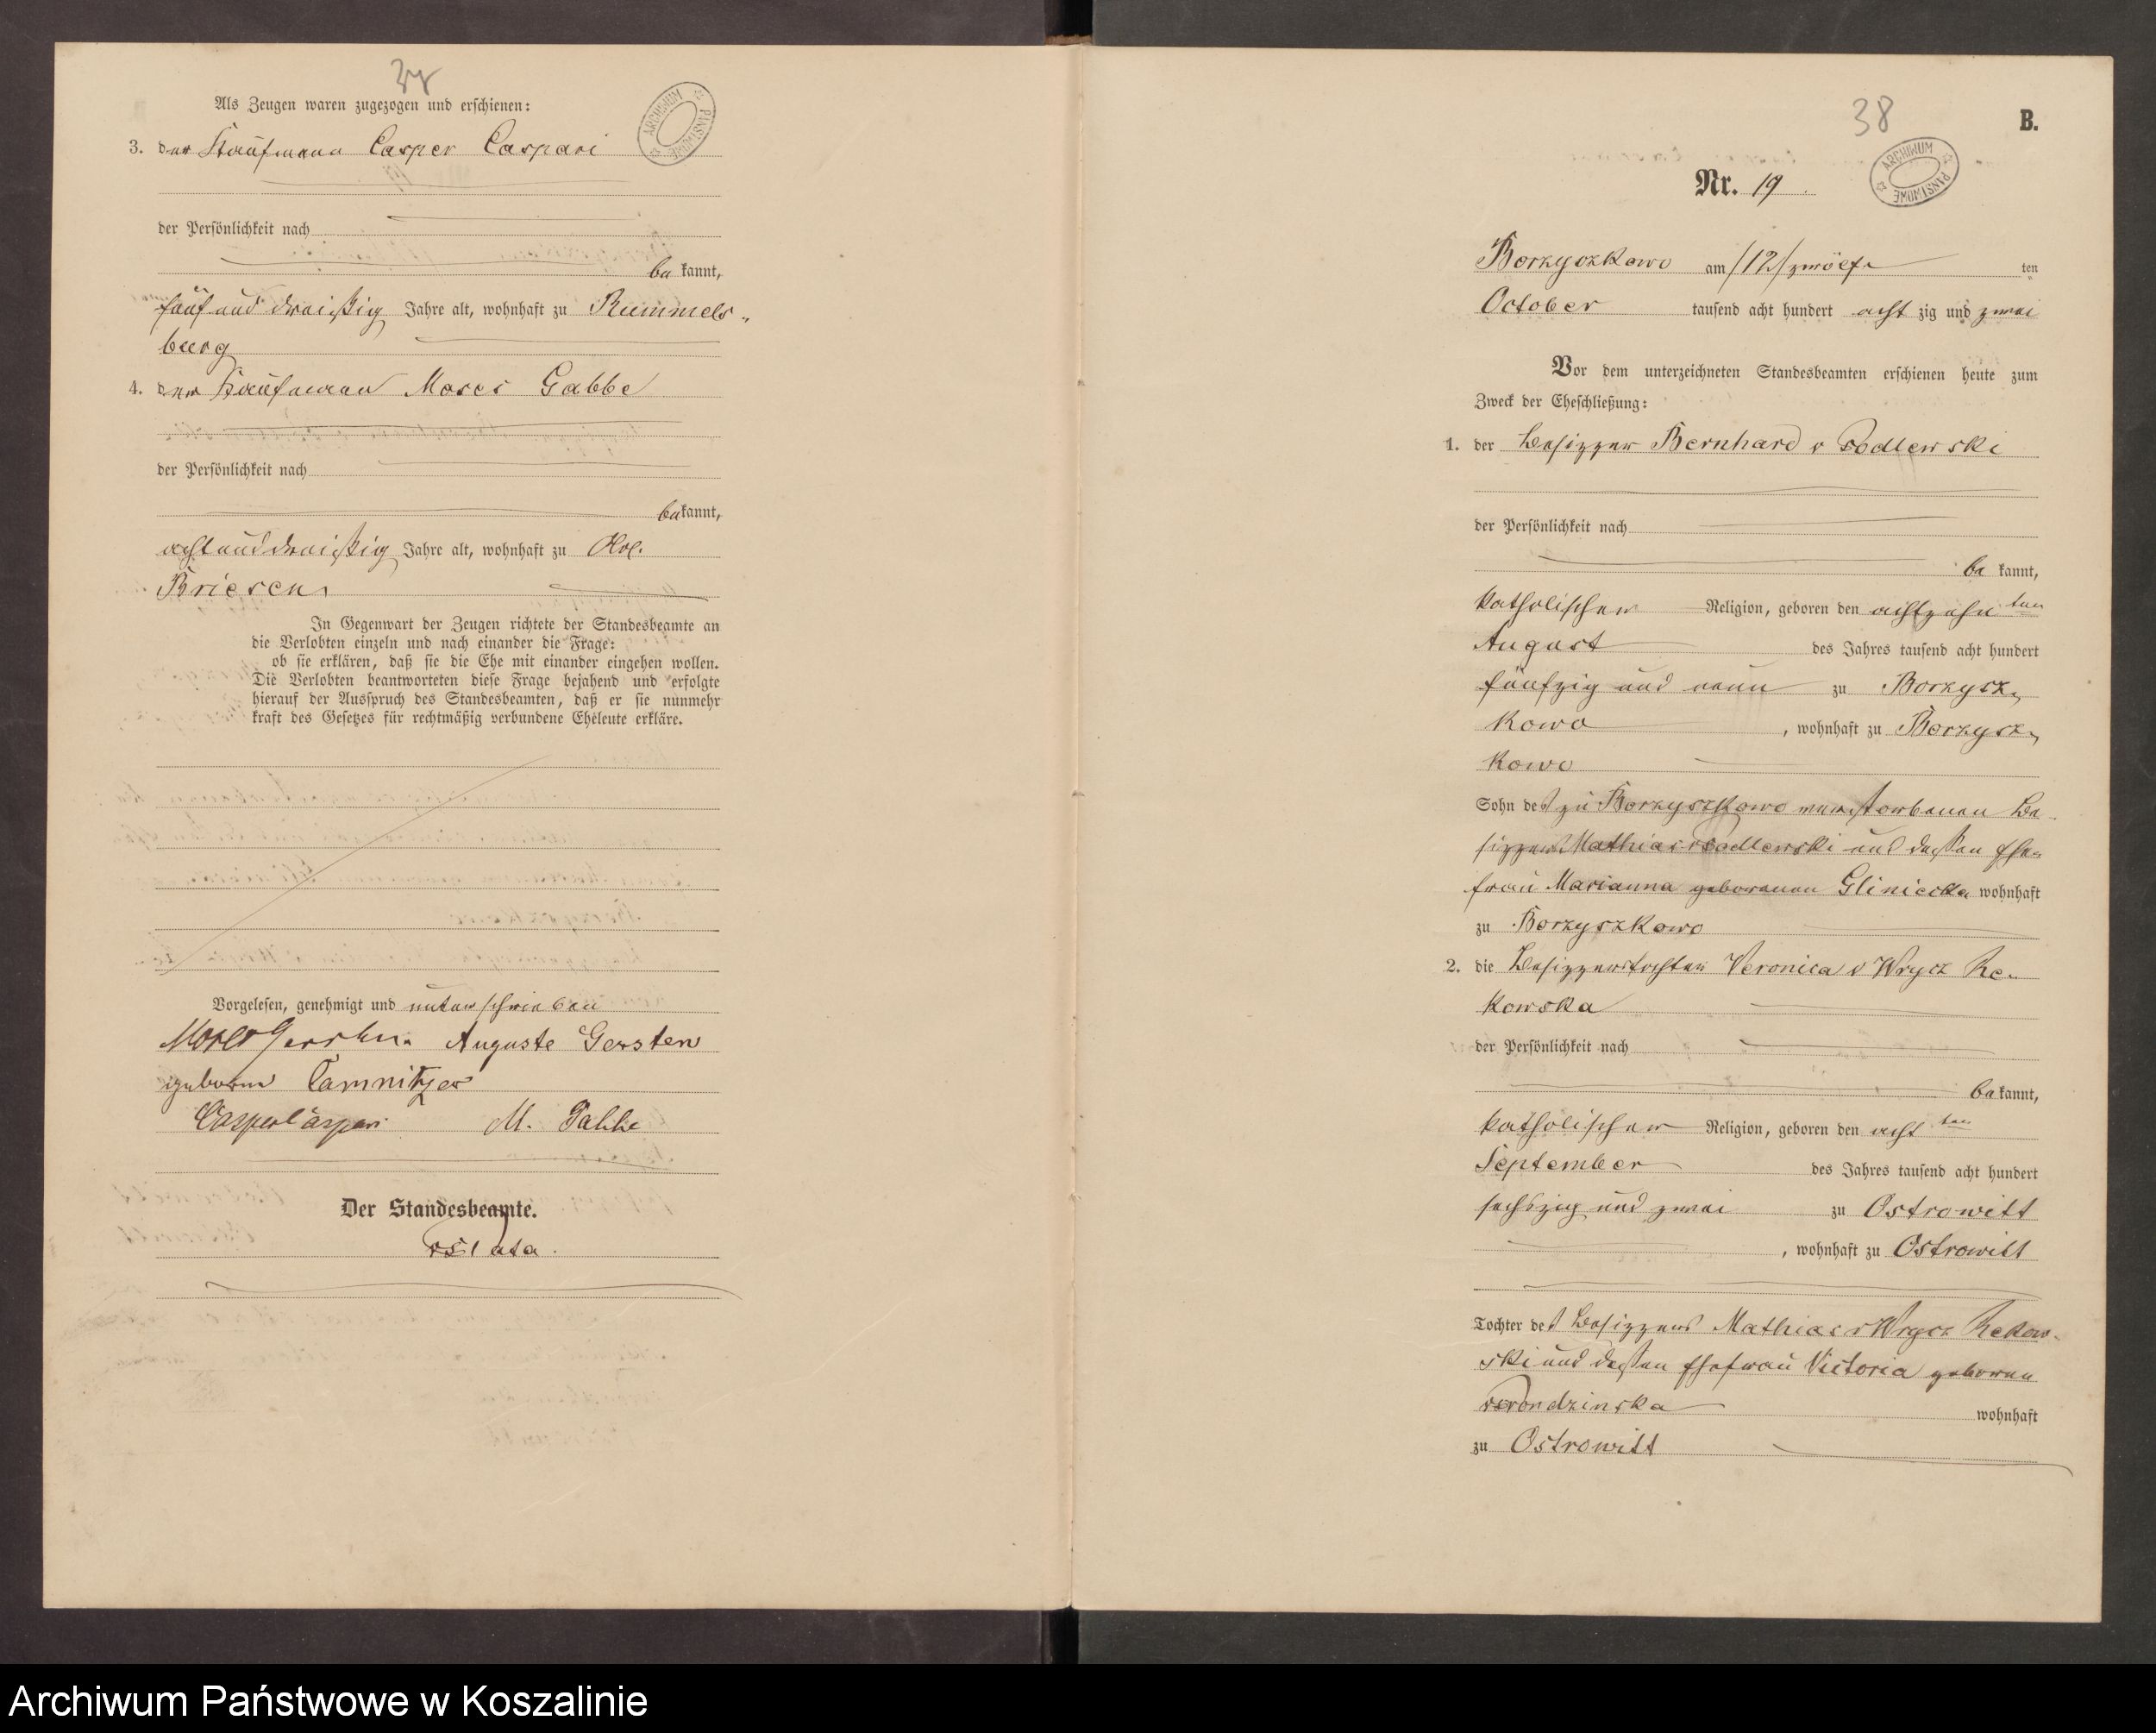 37
Als Zeugen waren zugezogen und erschienen:
3. der Kaufmann Casper Caspari
der Persönlichkeit nach
be kannt,
fünf und dreißig Jahre alt, wohnhaft zu Rummels-
burg
4. der Kaufmann Moses Gabbe
der Persönlichkeit nach
be kannt,
acht und dreißig Jahre alt, wohnhaft zu
Briesen
In Gegenwart der Zeugen richtete der Standesbeamte an
die Verlobten einzeln und nach einander die Frage:
ob sie erklären, daß sie die Ehe mit einander eingehen wollen.
Die Verlobten beantworteten diese Frage bejahend und erfolgte
hierauf der Ausspruch des Standesbeamten, daß er sie nunmehr
kraft des Gesetzes für rechtmäßig verbundene Eheleute erkläre.
Vorgelesen, genehmigt und unterschrieben
Moses Gersten. Auguste Gersten
geborne Camnitzer
Casper Caspari M. Gabbe
Der Standesbeamte.
38
B.
ARCHIWUM PAŃSTWOWE
Nr. 19.
Borzyszkowo am /12/ zwölf ten
October tausend acht hundert acht zig und zwei
Vor dem unterzeichneten Standesbeamten erschienen heute zum
Zweck der Eheschließung:
1. der Besitzer Bernhard v Podlewski
der Persönlichkeit nach
be kannt,
katholischer Religion, geboren den achtzehn ten
August des Jahres tausend acht hundert
fünfzig und neun zu Borzysz-
kowo, wohnhaft zu Borzysz-
kowo
Sohn des zu Borzyszkowo verstorbenen Be-
sitzers Mathias v Podlewski und dessen Ehe-
frau Marianna geborenen Gliniecka wohnhaft
zu Borzyszkowo
2. die Besitzerstochter Veronica v Wrycz Re-
kowska
der Persönlichkeit nach
be kannt,
katholischer Religion, geboren den acht ten
September des Jahres tausend acht hundert
sechszig und zwei zu Ostrowitt
, wohnhaft zu Ostrowitt
Tochter des Besitzers Mathias v Wrycz Rekow-
ski und dessen Ehefrau Victoria geboren
v Prondzinska wohnhaft
zu Ostrowitt
Archiwum Państwowe w Koszalinie